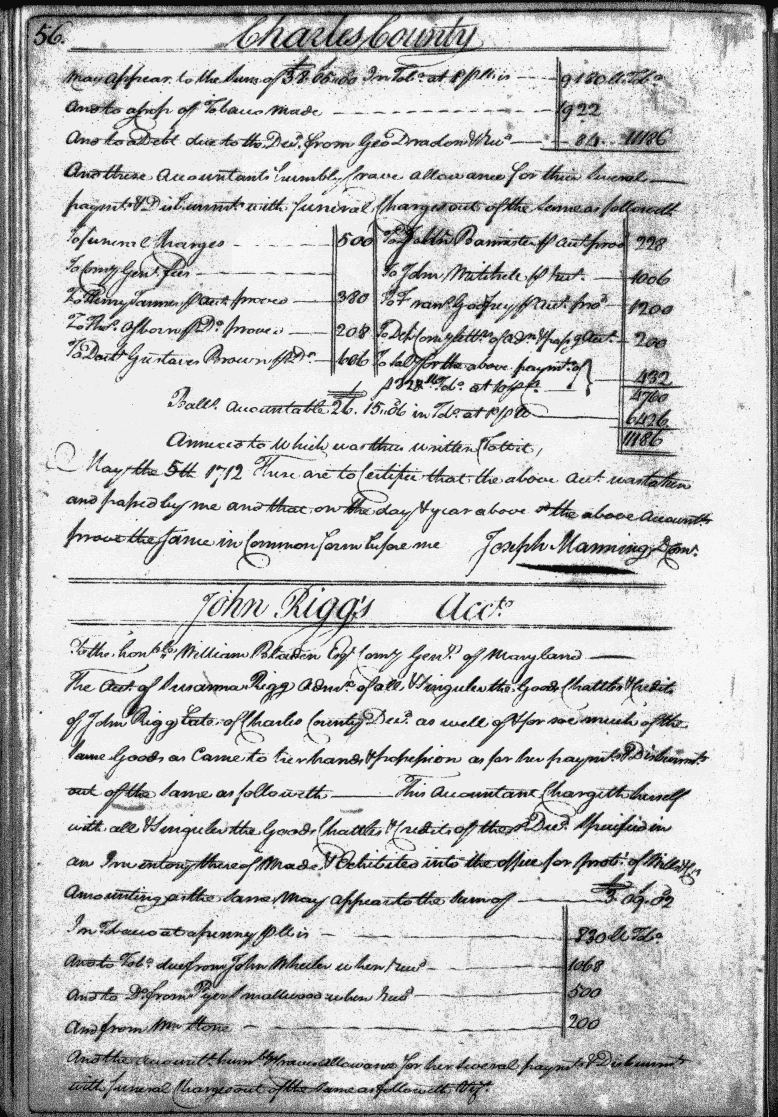 56. Charles County
may appear to the Sum of £38.05.00 In Tobo at 1d p lb is 9130 lb Tobo
And to a Crop of Tobacco made 1922
And to a Debt due to the Decd. from Geo Dradon when 84 11186
And these Accountants humbly Crave allowance for their Several
paymts & Disbursmts with funeral Charges out of the Same as followeth
To funeral Charges 500 To John Banister p Acct proved 228
To Comry Genls. fees To John Mitchell p Acct. 1006
To Henry Tanner p Acct proved 380 To Frans. Godfrey p Acct. prod 1200
To Thos. Osborn p Do. proved 208 To Dep Comry Letts. of adm & passg Acct. 200
To Doctr Gustavus Brown p Do. 606 To Sal for the above paymts. of
Tobo at 10 p Ct. 432
4760
Ballc. Accountable 26.15.06 in Tobo at 1d p lb 6426
11186
Annexed to which was thus written (Towit,
May the 5th 1712 These are to Certifie that the above Acct. was taken
and passed by me and that on the day & year above sd the above Accountts
prove the Same in Common form before me Joseph Manning D Com.
John Rigg's Acct.
To the honble. William Bladen Esqr Comry Genll. of Maryland
The Acct. of Susanna Rigg Admx. of all & Singular the Goods Chattles & Credits
of John Rigg Late of Charles County Decd. as well of & for soe much of the
Same Goods as Came to her hands & possession as for her paymts. & Disbursmts
out of the Same as followeth This Accountant Chargeth herself
with all & Singular the Goods Chattles & Credits of the sd Decd. Specified in
an Inventory thereof Made & Exhibited into the office for probt. of Wills &c
Amounting as the Same May appear to the Sum of £3.09.02
In Tobacco at a penny p lb is 830 lb Tobo
And to Tobo due from John Wheeler when recd 1068
And to Do from Pyer Smallwood when recd 500
And from Mr Stone 200
And the Accountt. humbly Craves allowance for her Several paymts & Disbursmts
with funeral Charges out of the Same as followeth Vizt.